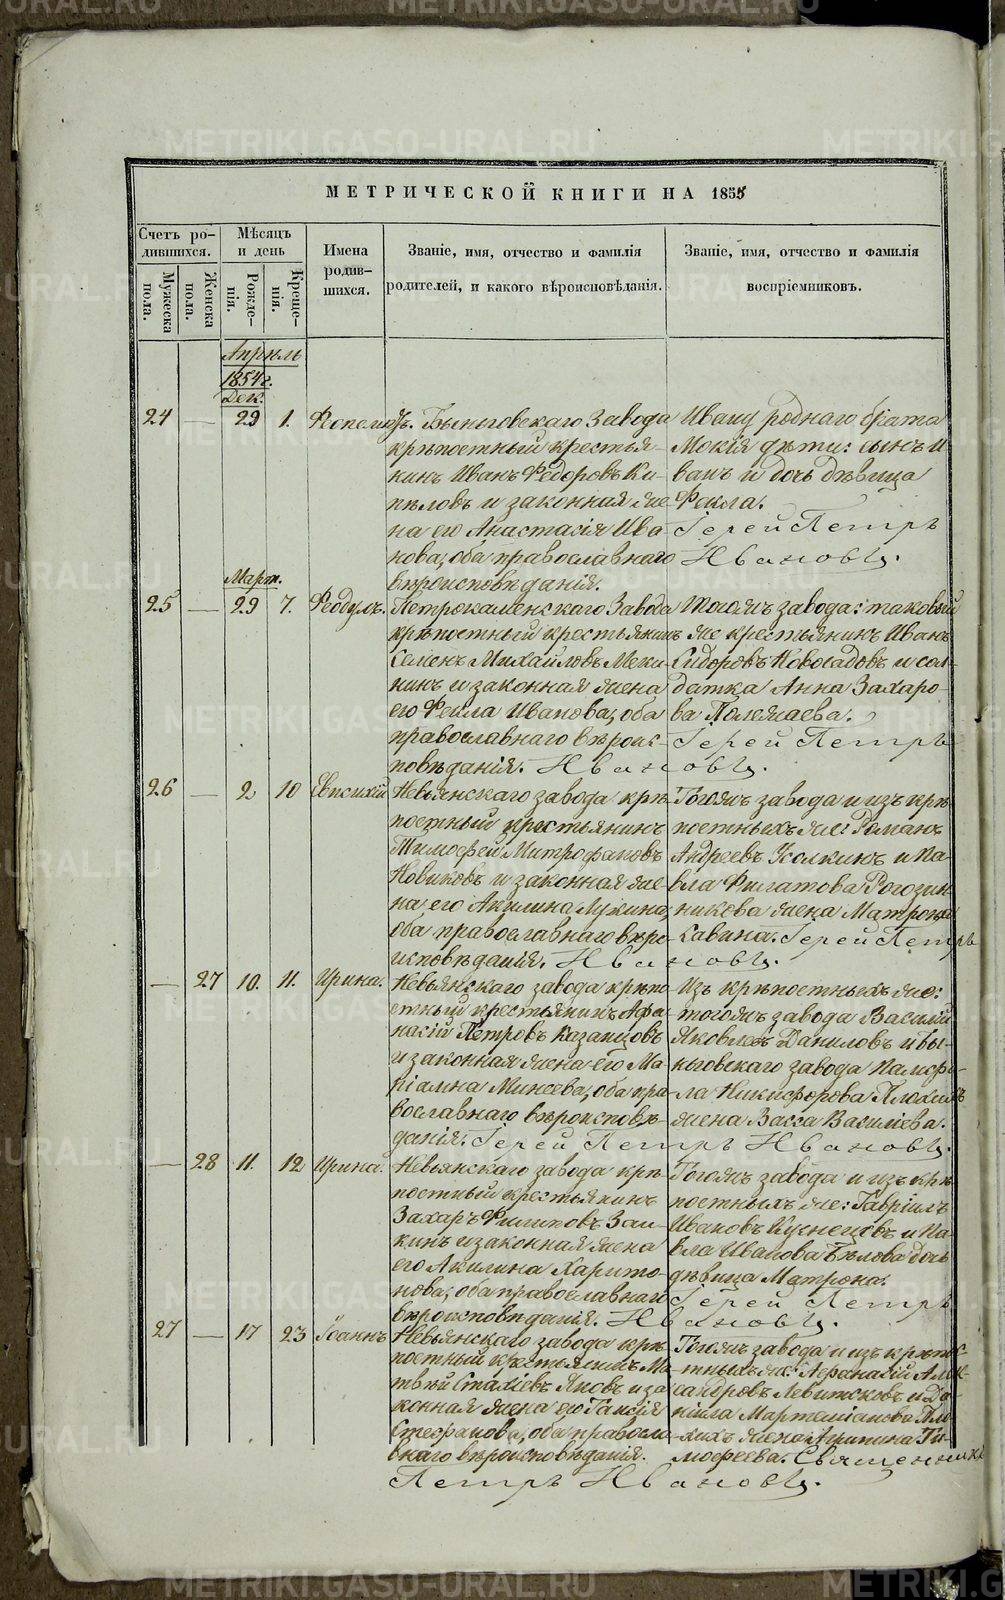 МЕТРИЧЕСКОЙ КНИГИ НА 1855
Счетъ ро-
дившихся.
Мужеска
пола.
Женска
пола.
Мѣсяцъ
и день
Рожде-
нія.
Креще-
нія.
Имена
родив-
шихся.
Званіе, имя, отчество и фамилія
родителей, и какого вѣроисповѣданія.
Званіе, имя, отчество и фамилія
воспріемниковъ.
Апрѣль
1854 г.
Дек.
24 — 29 1.
Быньговскаго Завода
крѣпостный крестья-
нинъ Иванъ Ѳедоровъ Ки-
пѣловъ и законная же-
на его Анастасія Ива-
нова, оба православнаго
вѣроисповѣданія.
Ивану роднаго брата
Мокія дѣти: сынъ И-
ванъ и дочь дѣвица
Ѳекла.
Іерей Петръ
Ивановъ.
Март.
25 — 29 7. Ѳеодулъ.
Петрокаменскаго Завода
крѣпостный крестьянинъ
Семенъ Михайловъ Меки-
нинъ и законная жена
его Ѳекла Иванова, оба
православнаго вѣроис-
повѣданія.
Тогожъ завода: таковый
же крестьянинъ Иванъ
Сидоровъ Новосадовъ и сол-
датка Анна Захаро-
ва Полежаева.
Іерей Петръ
Ивановъ.
26 — 2 10 Евпсихій
Невьянскаго завода крѣ-
постный крестьянинъ
Тимоѳей Митрофановъ
Новиковъ и законная же-
на его Акилина Лукина,
оба православнаго вѣро-
исповѣданія.
Тогожъ завода и изъ крѣ-
постныхъ же: Романъ
Андреевъ Колкинъ и Па-
вла Филатова Рогозин-
никова жена Матрона
Савина. Іерей Петръ
Ивановъ.
— 27 10. 11. Ирина.
Невьянскаго завода крѣпо-
стный крестьянинъ Афа-
насій Петровъ Казанцовъ
и законная жена его Ма-
ріамна Минеева, оба пра-
вославнаго вѣроисповѣ-
данія.
Изъ крѣпостныхъ же:
тогожъ завода Василій
Яковлевъ Даниловъ и Бы-
ньговскаго завода Памфи-
ла Никифорова Плохихъ
жена Васса Василіева.
Іерей Петръ Ивановъ.
— 28 11. 12 Ирина.
Невьянскаго завода крѣ-
постный крестьянинъ
Захаръ Филиповъ Заи-
кинъ и законная жена
его Акилина Харито-
нова, оба православнаго
вѣроисповѣданія.
Тогожъ завода и изъ крѣ-
постныхъ же: Гавріилъ
Ивановъ Кузнецовъ и Па-
вла Иванова Бѣлова дочь
дѣвица Матрона.
Іерей Петръ
Ивановъ.
27 — 17 23 Іоаннъ
Невьянскаго завода крѣ-
постный крестьянинъ Ма-
твѣй Стахіевъ Яковъ и за-
конная жена его Таисія
Стефанова, оба правосла-
внаго вѣроисповѣданія.
Тогожъ завода и изъ крѣпос-
тныхъ же: Афанасій Алек-
сандровъ Левитсковъ и Да-
ніила Мартеміанова Пло-
хихъ жена Агрипина Ти-
мофеева. Священникъ
Петръ Ивановъ.